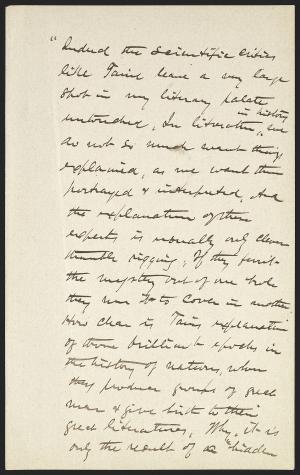 "Indeed the scientific critics
like Taine leave a very large
spot in my literary palate
untouched. In literature, in history we
do not so much want things
explained, as we want them
portrayed & interpreted. And
the explanation of these
experts is usually only clever
thimble rigging; If they ferret
the mystery out of one hole
they run it to cover in another
How clear is Taine's explanation
of those brilliant epochs in
the history of nations, when
they produce groups of great
men & give birth to their
great literatures. Why, it is
only the result of a "hidden